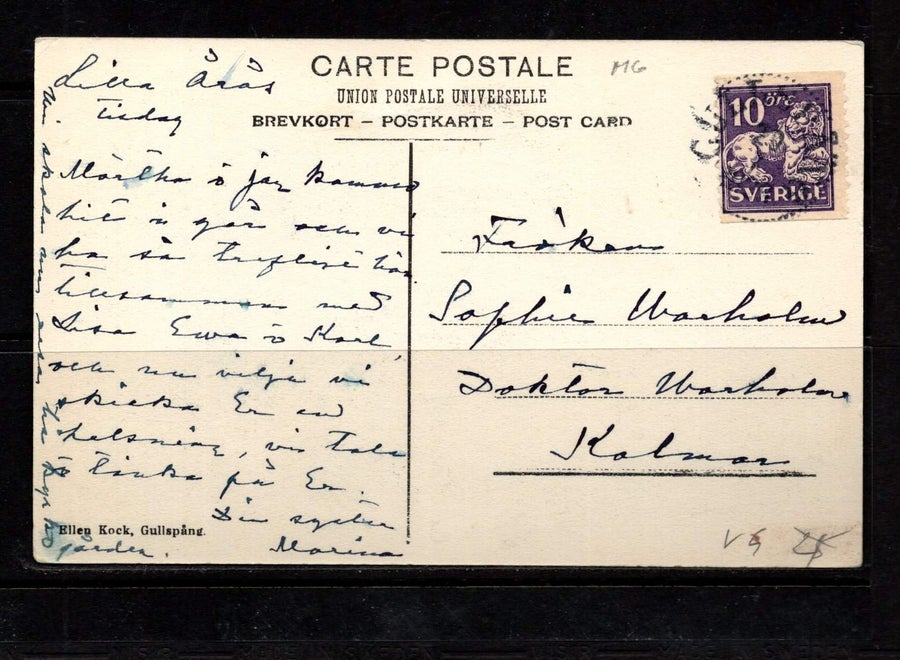 CARTE POSTALE
UNION POSTALE UNIVERSELLE
BREVKORT – POSTKARTE – POST CARD
MG
10 öre
SVERIGE
Lilla Årås
Tisdag
Märtha o jag kommo
hit i går och vi
ha så trefligt här
tillsammans med
Lisa Ewa o Karl,
och nu vilja vi
skicka Er en
helsning, vi tala
o tänka på Er.
Din syster
Marina
Ellen Kock, Gullspång.
Fröken
Sophie Warholm
Doktor Warholm
Kalmar
VG